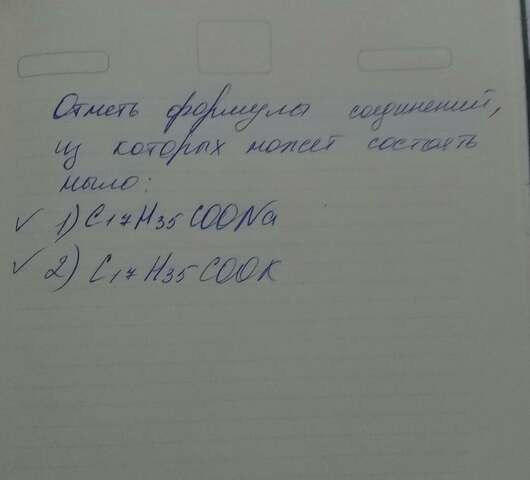 Отметь формулы соединений,
из которых может состоять
мыло:
✓ 1) C17H35COONa
✓ 2) C17H35COOK